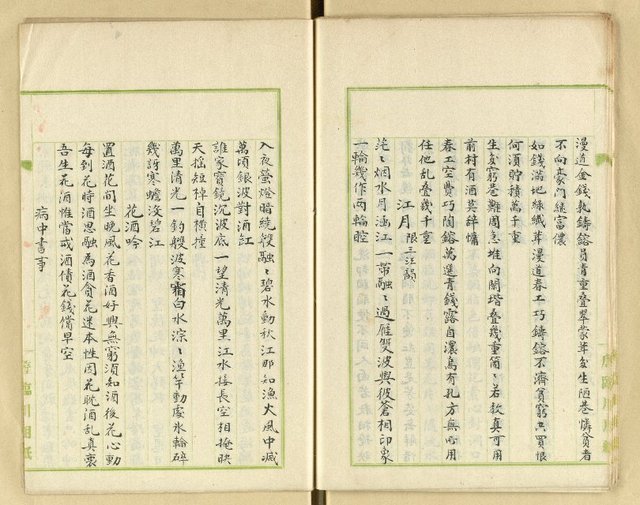 漫道金錢孰鑄鎔員青重疊翠蒙茸𡛷生陋巷憐貧者
不向豪門繞富儂
如錢滿地綠絨茸漫道春工巧鑄鎔不濟貧窮只買恨
何須貯積萬千重
生𡛷窮巷難圖志堆向閒堦叠幾重箇〻若教真可用
前村有酒莫辭慵
春工空費巧陶鎔萬選青錢露自濃烏有孔方無心用
任他亂疊幾千重
江月 限三江韻
〻烟水月涵江一帶融〻過雁雙波與彼蒼相印象
一輪幾作兩輪腔
入夜螢燈暗繞艭融〻碧水動秋江那如漁火風中滅
萬頃銀波對酒缸
誰家寶鏡沉波底一望清光萬里江水接長空相掩映
天搖短棹自橫撞
萬里清光一釣艭波寒霜白水淙〻漁竿動處氷輪碎
幾訝寒蟾沒碧江
花酒吟
置酒花間坐晚風花香酒好興無窮須知酒後花心動
每到花時酒思融為酒貪花迷本性因花耽酒乱真衷
吾生花酒惟當戒酒債花錢償早空
病中書事